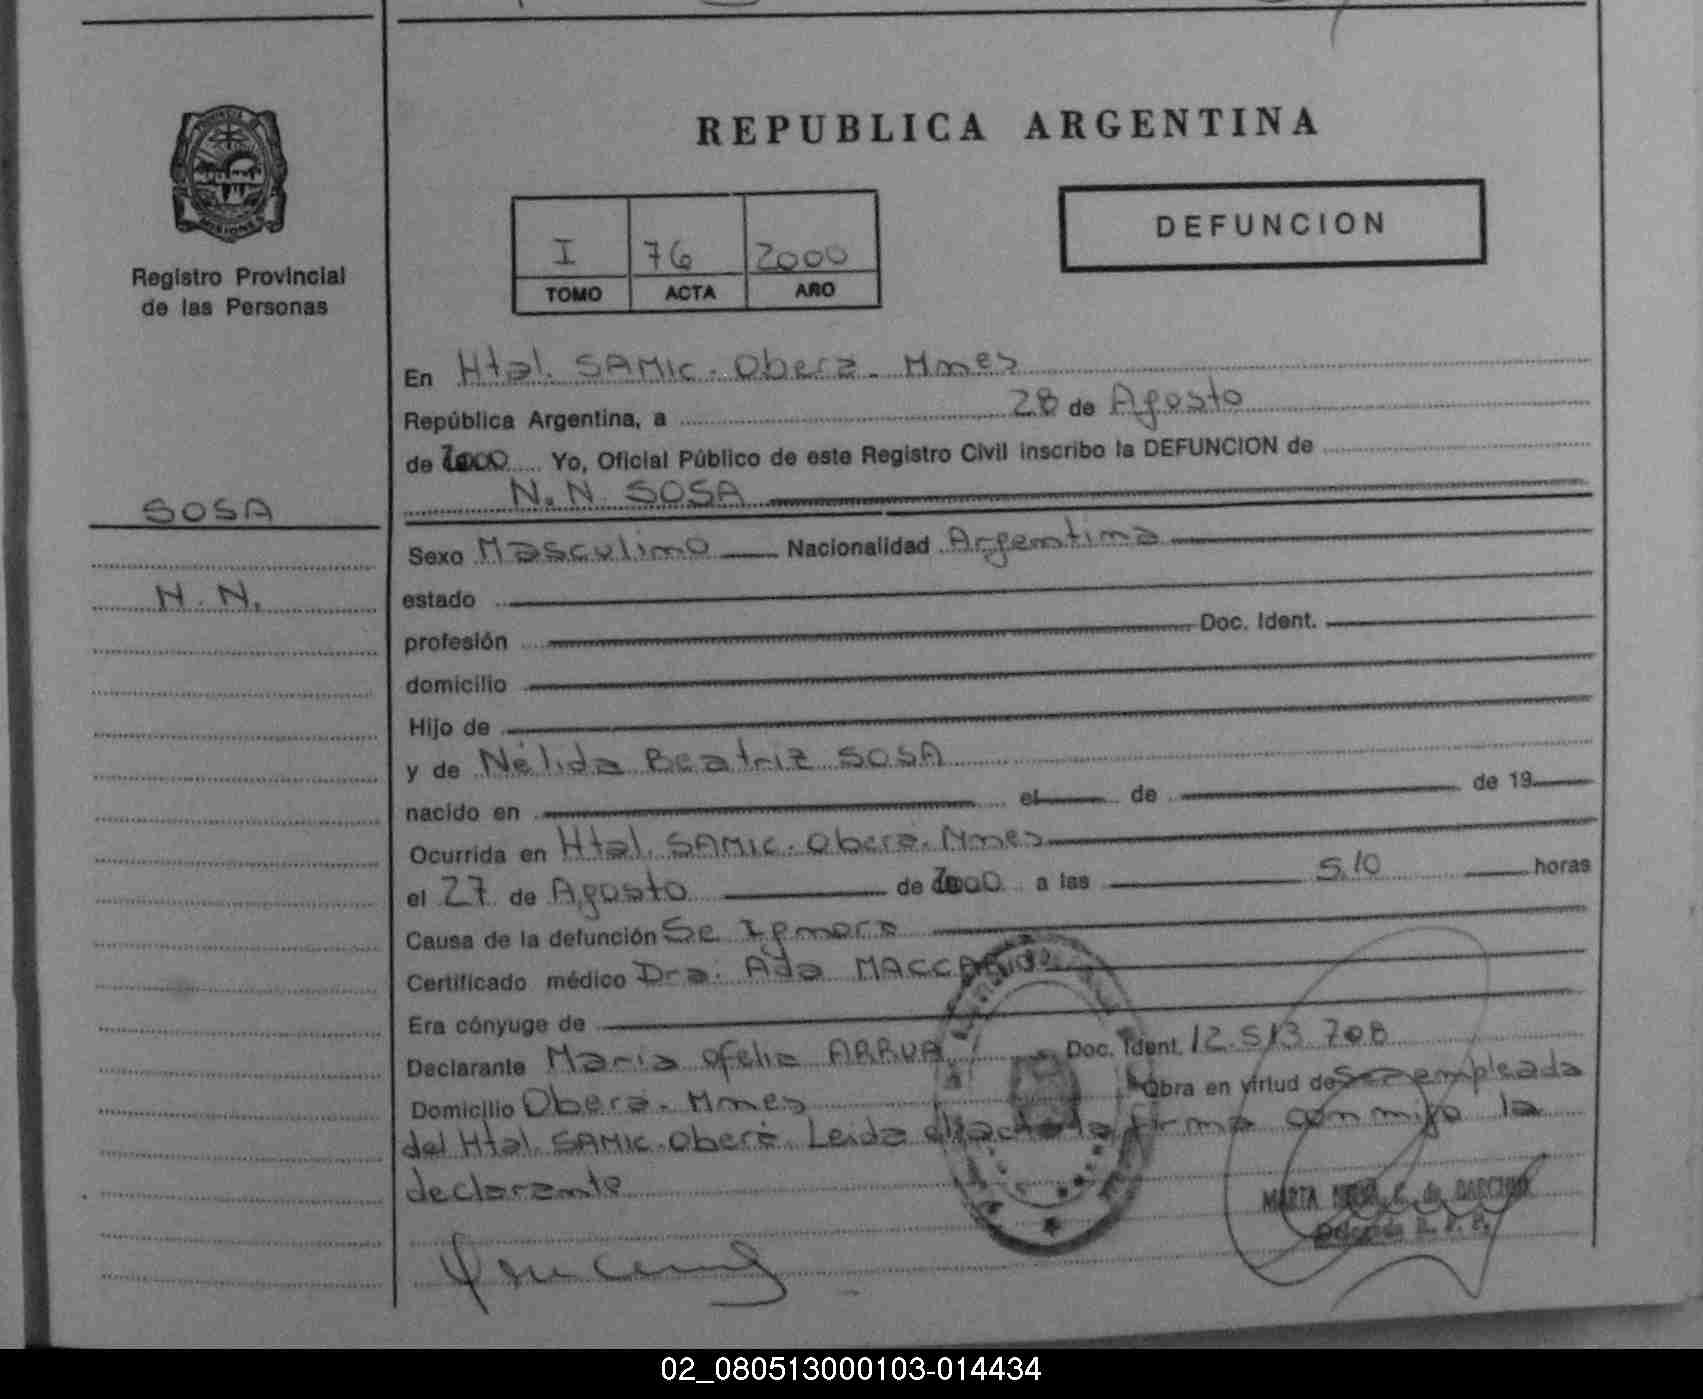 REPUBLICA ARGENTINA
PROVINCIA DE
MISIONES
Registro Provincial
de las Personas
DEFUNCION
I 76 2000
TOMO ACTA AÑO
En Htal. SAMIC. Oberá. Mnes
República Argentina, a 28 de Agosto
de 2000 Yo, Oficial Público de este Registro Civil inscribo la DEFUNCION de
N.N. SOSA
SOSA
N.N.
Sexo Masculino Nacionalidad Argentina
estado
profesión Doc. Ident.
domicilio
Hijo de
y de Nélida Beatriz SOSA
nacido en el de de 19
Ocurrida en Htal. SAMIC. Oberá. Mnes
el 27 de Agosto de 2000 a las 5.10 horas
Causa de la defunción Se Ignora
Certificado médico Dra. Ada
Era cónyuge de
Declarante María Ofelia ARRUA Doc. Ident. 12.513.708
Domicilio Oberá. Mnes Obra en virtud de Ser empleada
del Htal. SAMIC. Oberá. Leída el acta la firma conmigo la
declarante
MARTA de
Delegada R. P. P.
02_080513000103-014434